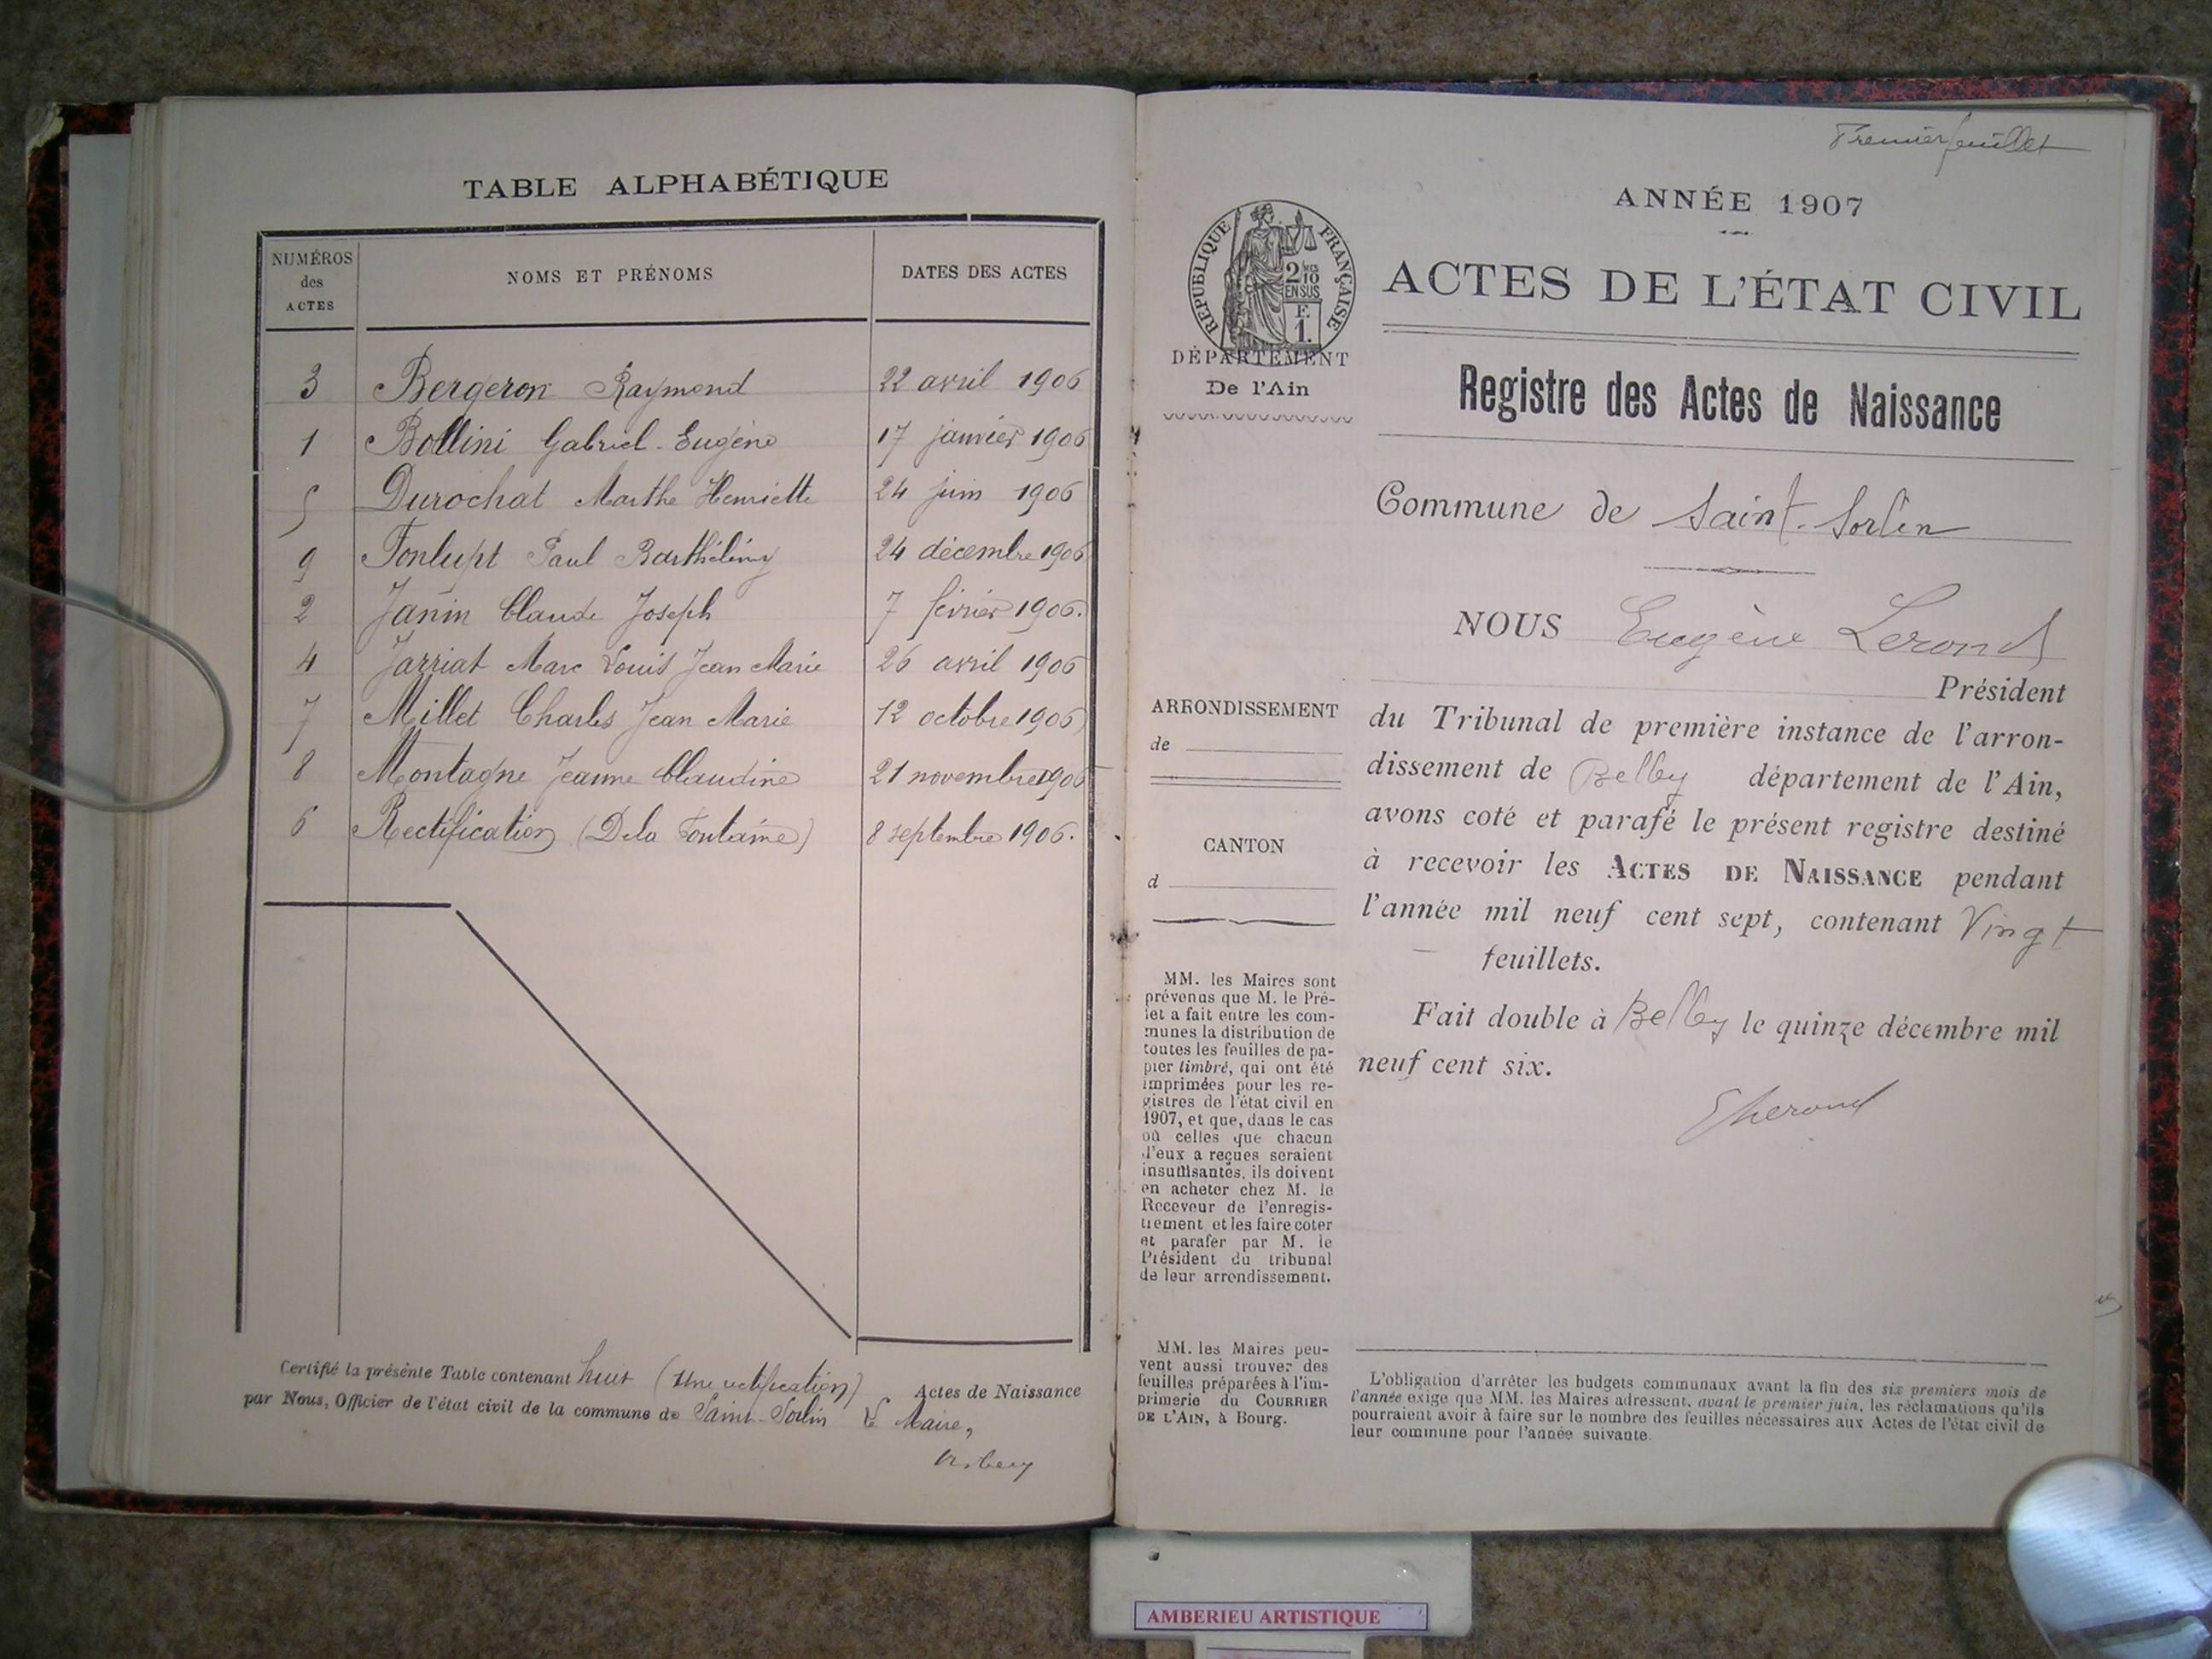 TABLE ALPHABÉTIQUE
NUMÉROS des ACTES
NOMS ET PRÉNOMS
DATES DES ACTES
3 Bergeron Raymond 22 avril 1906
1 Bollini Gabriel-Eugène 17 janvier 1906
5 Durochat Marthe Henriette 24 juin 1906
9 Fonlupt Paul Barthélémy 24 décembre 1906
2 Janin Claude Joseph 7 février 1906.
4 Jarriat Marc Louis Jean Marie 26 avril 1906
7 Millet Charles Jean Marie 12 octobre 1906
8 Montagne Jeanne Claudine 21 novembre 1906
6 Rectification (Dela Fontaine) 8 septembre 1906.
Certifié la présente Table contenant huit (une rectification) Actes de Naissance
par Nous, Officier de l'état civil de la commune de Saint-Sorlin Le Maire,
Premier feuillet
ANNÉE 1907
RÉPUBLIQUE FRANÇAISE
2/10 EN SUS
F. 1.
ACTES DE L'ÉTAT CIVIL
DÉPARTEMENT
De l'Ain
Registre des Actes de Naissance
Commune de Saint-Sorlin
NOUS Eugène Lerond
Président
du Tribunal de première instance de l'arron-
dissement de Belley département de l'Ain,
avons coté et parafé le présent registre destiné
à recevoir les ACTES DE NAISSANCE pendant
l'année mil neuf cent sept, contenant Vingt
feuillets.
Fait double à Belley le quinze décembre mil
neuf cent six.
ELerond
ARRONDISSEMENT
de
CANTON
d
MM. les Maires sont
prévenus que M. le Pré-
fet a fait entre les com-
munes la distribution de
toutes les feuilles de pa-
pier timbré, qui ont été
imprimées pour les re-
gistres de l'état civil en
1907, et que, dans le cas
où celles que chacun
d'eux a reçues seraient
insuffisantes, ils doivent
en acheter chez M. le
Receveur de l'enregis-
trement et les faire coter
et parafer par M. le
Président du tribunal
de leur arrondissement.
MM. les Maires peu-
vent aussi trouver des
feuilles préparées à l'im-
primerie du COURRIER
DE L'AIN, à Bourg.
L'obligation d'arrêter les budgets communaux avant la fin des six premiers mois de
l'année exige que MM. les Maires adressent, avant le premier juin, les réclamations qu'ils
pourraient avoir à faire sur le nombre des feuilles nécessaires aux Actes de l'état civil de
leur commune pour l'année suivante.
AMBERIEU ARTISTIQUE